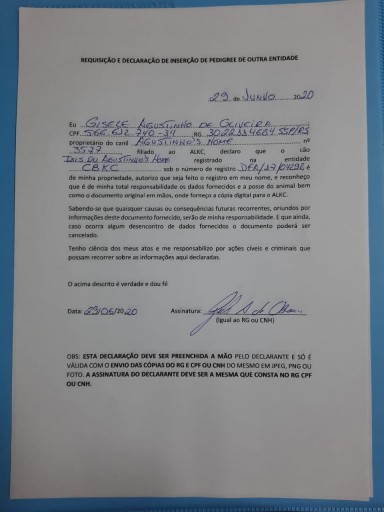 REQUISIÇÃO E DECLARAÇÃO DE INSERÇÃO DE PEDIGREE DE OUTRA ENTIDADE
29 de JUNHO 2020
Eu GISELE AGUSTINHO DE OLIVEIRA
CPF RG
proprietário do canil AGUSTINHO'S HOME nº
3577 filiado ao ALKC, declaro que o cão
DU AGUSTINHO'S HOME registrado na entidade
CBKC sob o número de registro é
de minha propriedade, autorizo que seja feito o registro em meu nome, e reconheço
que é de minha total responsabilidade os dados fornecidos e a posse do animal bem
como o documento original em mãos, onde forneço a cópia digital para o ALKC.
Sabendo-se que quaisquer causas ou consequências futuras recorrentes, oriundos por
informações deste documento fornecido, serão de minha responsabilidade. E que ainda,
caso ocorra algum desencontro de dados fornecidos o documento poderá ser
cancelado.
Tenho ciência dos meus atos e me responsabilizo por ações cíveis e criminais que
possam recorrer sobre as informações aqui declaradas.
O acima descrito é verdade e dou fé
Data: 29/06/2020 Assinatura:
(Igual ao RG ou CNH)
OBS: ESTA DECLARAÇÃO DEVE SER PREENCHIDA A MÃO PELO DECLARANTE E SÓ É
VÁLIDA COM O ENVIO DAS CÓPIAS DO RG E CPF OU CNH DO MESMO EM JPEG, PNG OU
FOTO. A ASSINATURA DO DECLARANTE DEVE SER A MESMA QUE CONSTA NO RG CPF
OU CNH.